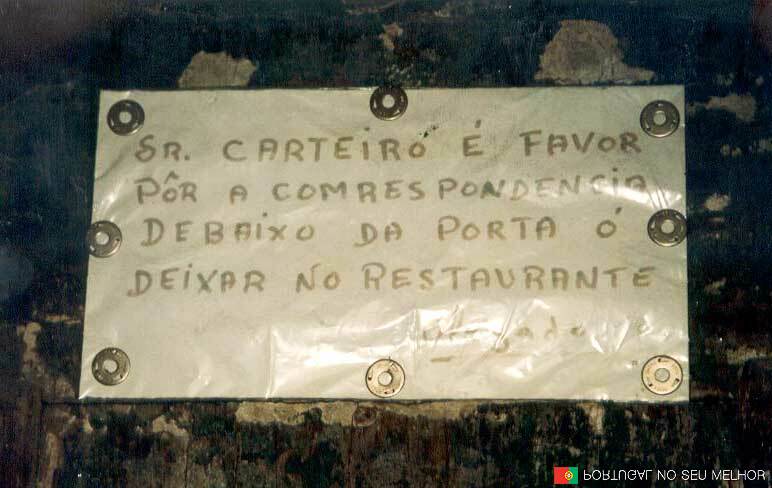 SR. CARTEIRO É FAVOR
PÔR A COMRESPONDENCIA
DEBAIXO DA PORTA Ó
DEIXAR NO RESTAURANTE
PORTUGAL NO SEU MELHOR